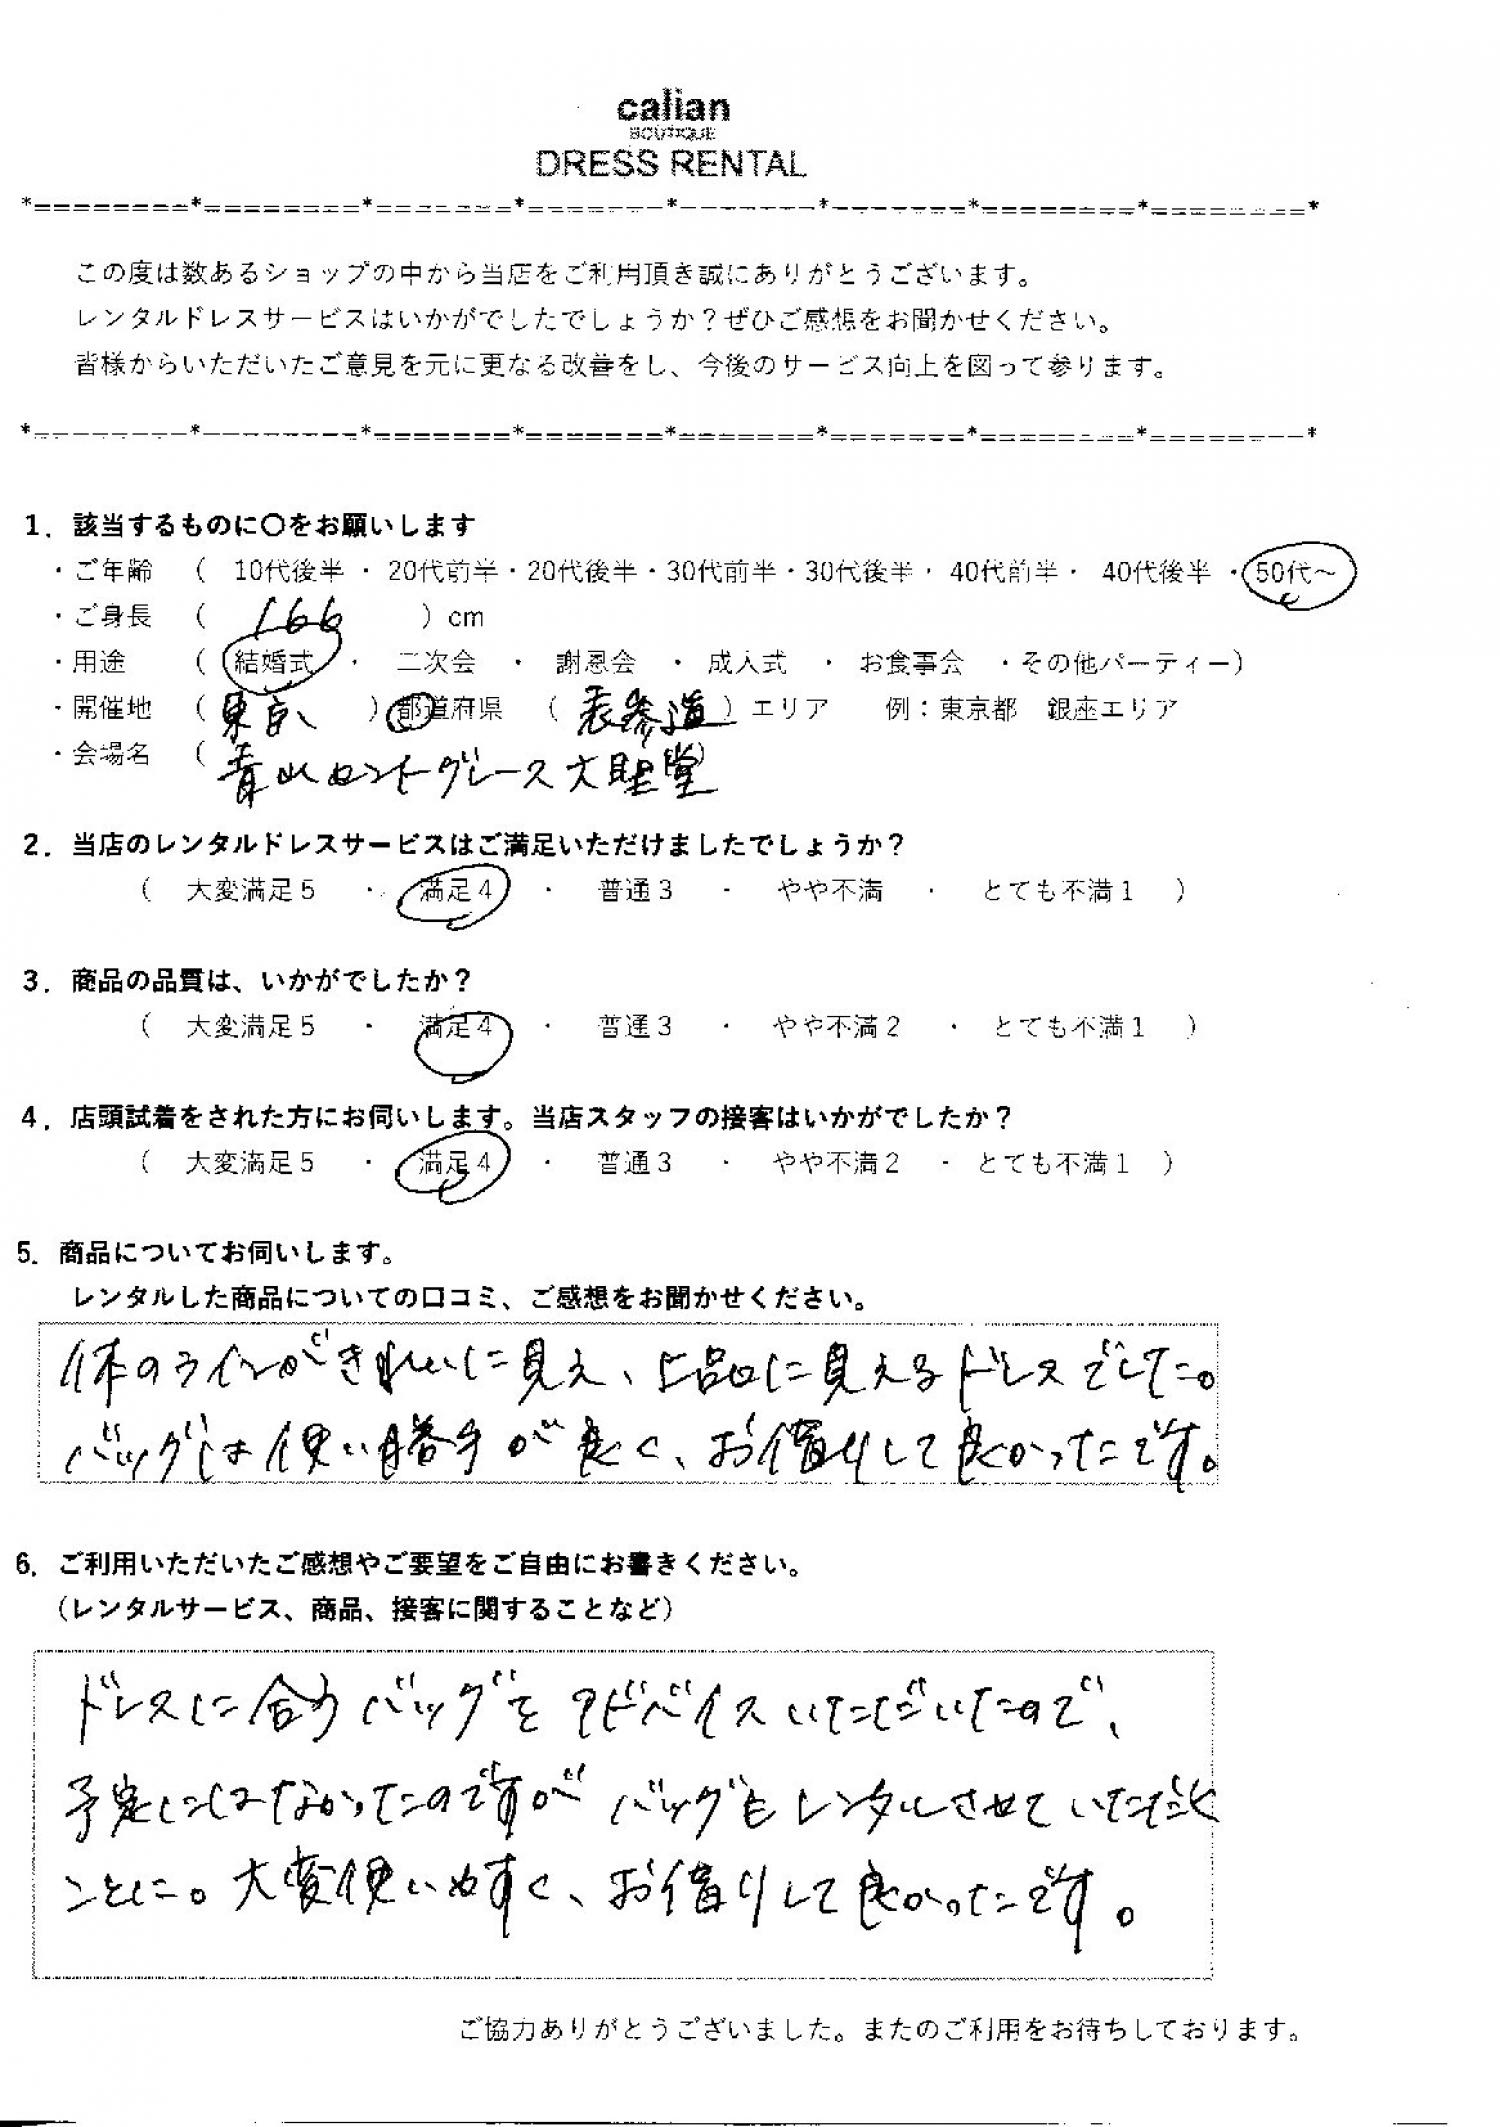 calian
BOUTIQUE
DRESS RENTAL
*========*========*=======*=======*=======*=======*========*========*
この度は数あるショップの中から当店をご利用頂き誠にありがとうございます。
レンタルドレスサービスはいかがでしたでしょうか？ぜひご感想をお聞かせください。
皆様からいただいたご意見を元に更なる改善をし、今後のサービス向上を図って参ります。
*========*========*=======*=======*=======*=======*========*========*
1．該当するものに〇をお願いします
・ご年齢 （ 10代後半 ・ 20代前半・20代後半・30代前半・30代後半・ 40代前半・ 40代後半 ・50代～
・ご身長 （ 166 ）cm
・用途 （ 結婚式 ・ 二次会 ・ 謝恩会 ・ 成人式 ・ お食事会 ・その他パーティー）
・開催地 （ 東京 ）都道府県 （ 表参道 ）エリア 例：東京都 銀座エリア
・会場名 （ 青山セントグレース大聖堂 ）
2．当店のレンタルドレスサービスはご満足いただけましたでしょうか？
（ 大変満足５ ・ 満足４ ・ 普通３ ・ やや不満 ・ とても不満１ ）
3．商品の品質は、いかがでしたか？
（ 大変満足５ ・ 満足４ ・ 普通３ ・ やや不満２ ・ とても不満１ ）
4．店頭試着をされた方にお伺いします。当店スタッフの接客はいかがでしたか？
（ 大変満足５ ・ 満足４ ・ 普通３ ・ やや不満２ ・ とても不満１ ）
5．商品についてお伺いします。
レンタルした商品についての口コミ、ご感想をお聞かせください。
体のラインがきれいに見え、上品に見えるドレスでした。
バッグは使い勝手が良く、お借りして良かったです。
6．ご利用いただいたご感想やご要望をご自由にお書きください。
（レンタルサービス、商品、接客に関することなど）
ドレスに合うバッグをアドバイスいただいたので、
予定にはなかったのですがバッグもレンタルさせていただく
ことに。大変使いやすく、お借りして良かったです。
ご協力ありがとうございました。またのご利用をお待ちしております。